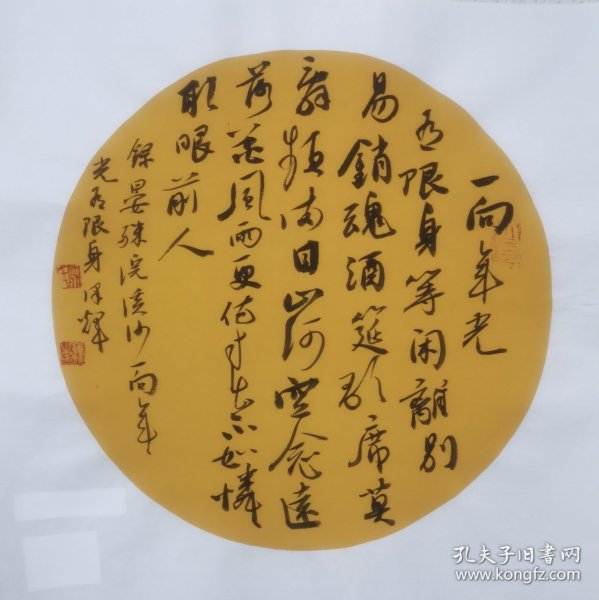 一向年光
有限身等闲離别
易銷魂酒筵歌席莫
辞頻满目山河空念遠
落花風雨更傷春不如憐
取眼前人
錄晏殊浣溪沙一向年
光有限身 輝
孔夫子旧书网
www.kongfz.com